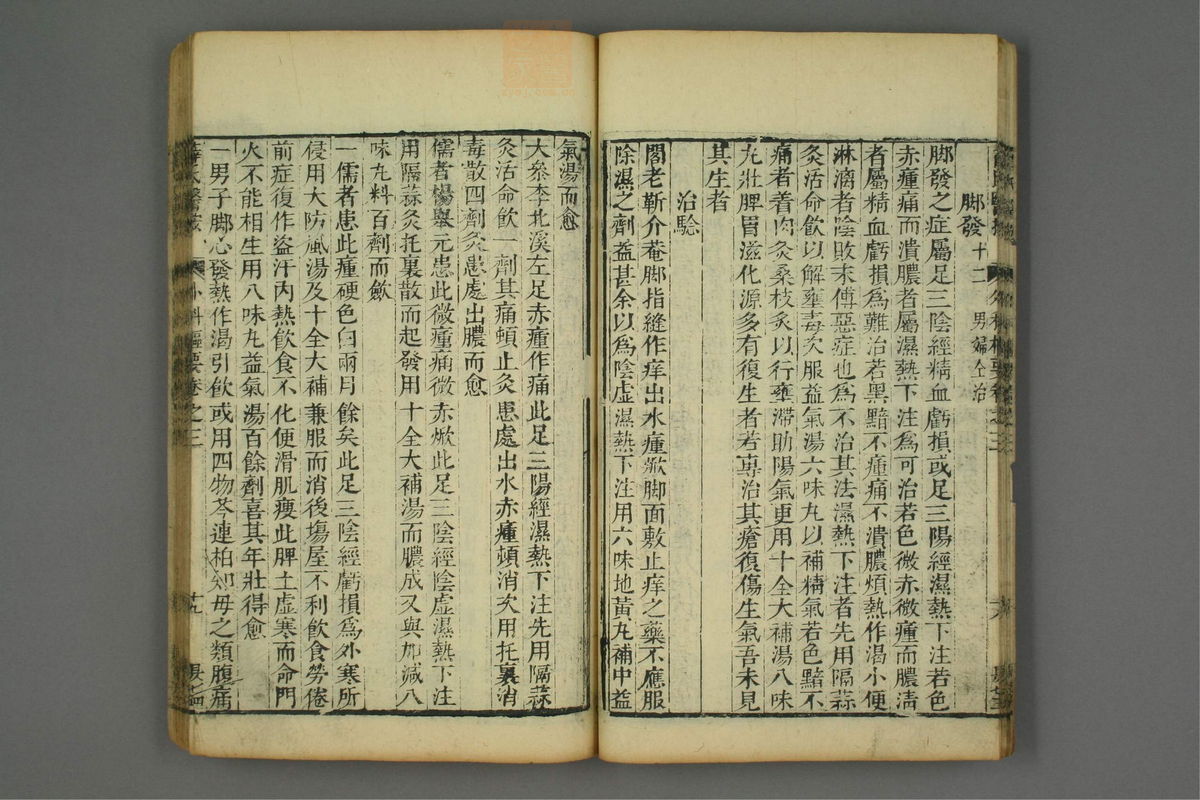 脚發十二 男婦仝治
脚發之症屬足三陰經精血虧損或足三陽經濕熱下注若色
赤瘇痛而潰膿者屬濕熱下注爲可治若色微赤微瘇而膿清
者屬精血虧損爲難治若黑黯不瘇痛不潰膿煩熱作渴小便
淋漓者陰敗末傳惡症也爲不治其法濕熱下注者先用隔蒜
灸活命飲以解壅毒次服益氣湯六味丸以補精氣若色黯不
痛者着肉灸桑枝灸以行壅滯助陽氣更用十全大補湯八味
丸壯脾胃滋化源多有復生者若專治其瘡復傷生氣吾未見
其生者
治驗
閣老靳介菴脚指縫作痒出水瘇焮脚面敷止痒之藥不應服
除濕之劑益甚余以爲陰虛濕熱下注用六味地黃丸補中益
氣湯而愈
大叅李北溪左足赤瘇作痛此足三陽經濕熱下注先用隔蒜
灸活命飲一劑其痛頓止灸患處出水赤瘇頓消次用托裏消
毒散四劑灸患處出膿而愈
儒者楊舉元患此微瘇痛微赤焮此足三陰經陰虛濕熱下注
用隔蒜灸托裏散而起發用十全大補湯而膿成又與加減八
味丸料百劑而斂
一儒者患此瘇硬色白兩月餘矣此足三陰經虧損爲外寒所
侵用大防風湯及十全大補兼服而消後塲屋不利飲食勞倦
前症復作盜汗內熱飲食不化便滑肌瘦此脾土虛寒而命門
火不能相生用八味丸益氣湯百餘劑喜其年壯得愈
一男子脚心發熱作渴引飲或用四物芩連柏知毋之類腹痛
薛氏醫案 外科樞要卷之三 十九